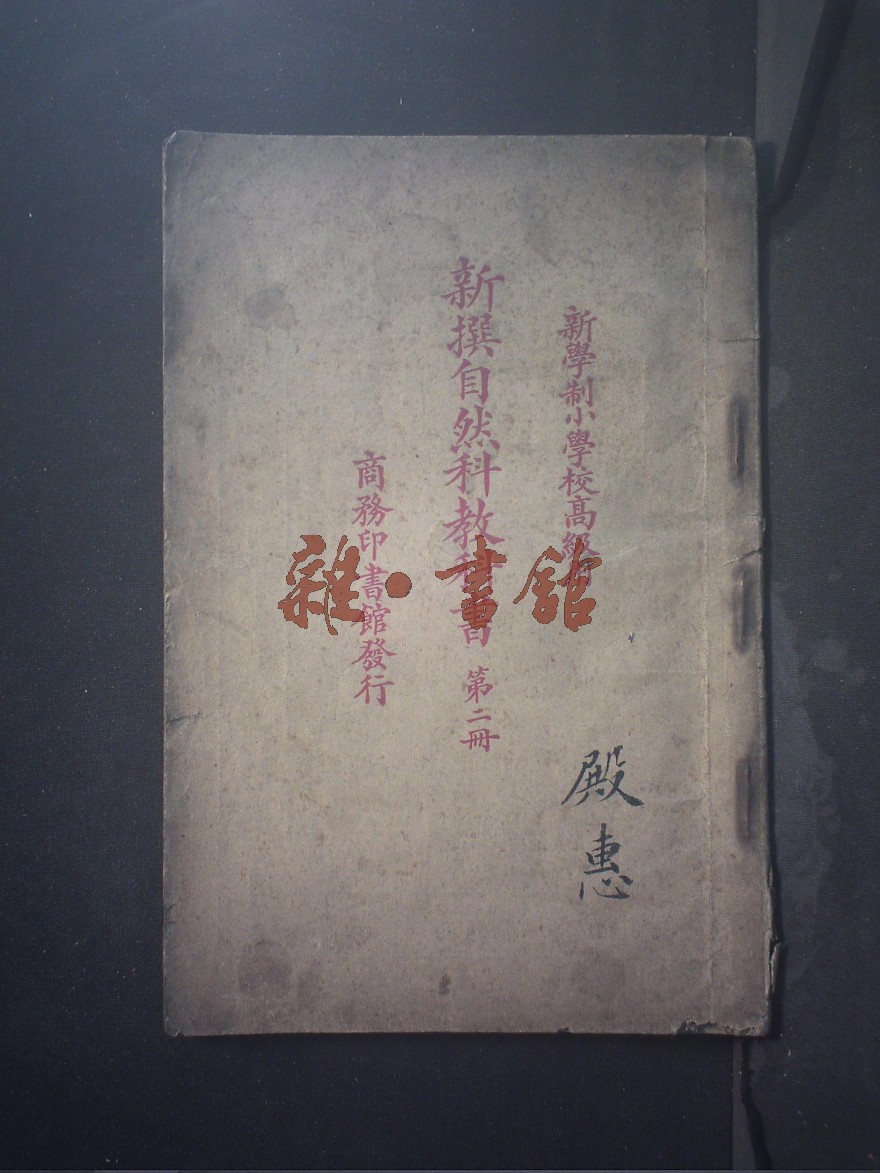 新學制小學校高級用
新撰自然科教科書 第二冊
商務印書館發行
殿惠
雜·書館